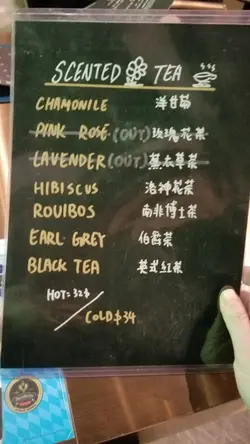 SCENTED TEA
CHAMONILE 洋甘菊
PINK ROSE (OUT) 玫瑰花茶
LAVENDER (OUT) 薰衣草茶
HIBISCUS 洛神花茶
ROUIBOS 南非博士茶
EARL GREY 伯爵茶
BLACK TEA 英式紅茶
HOT=32$
COLD$34